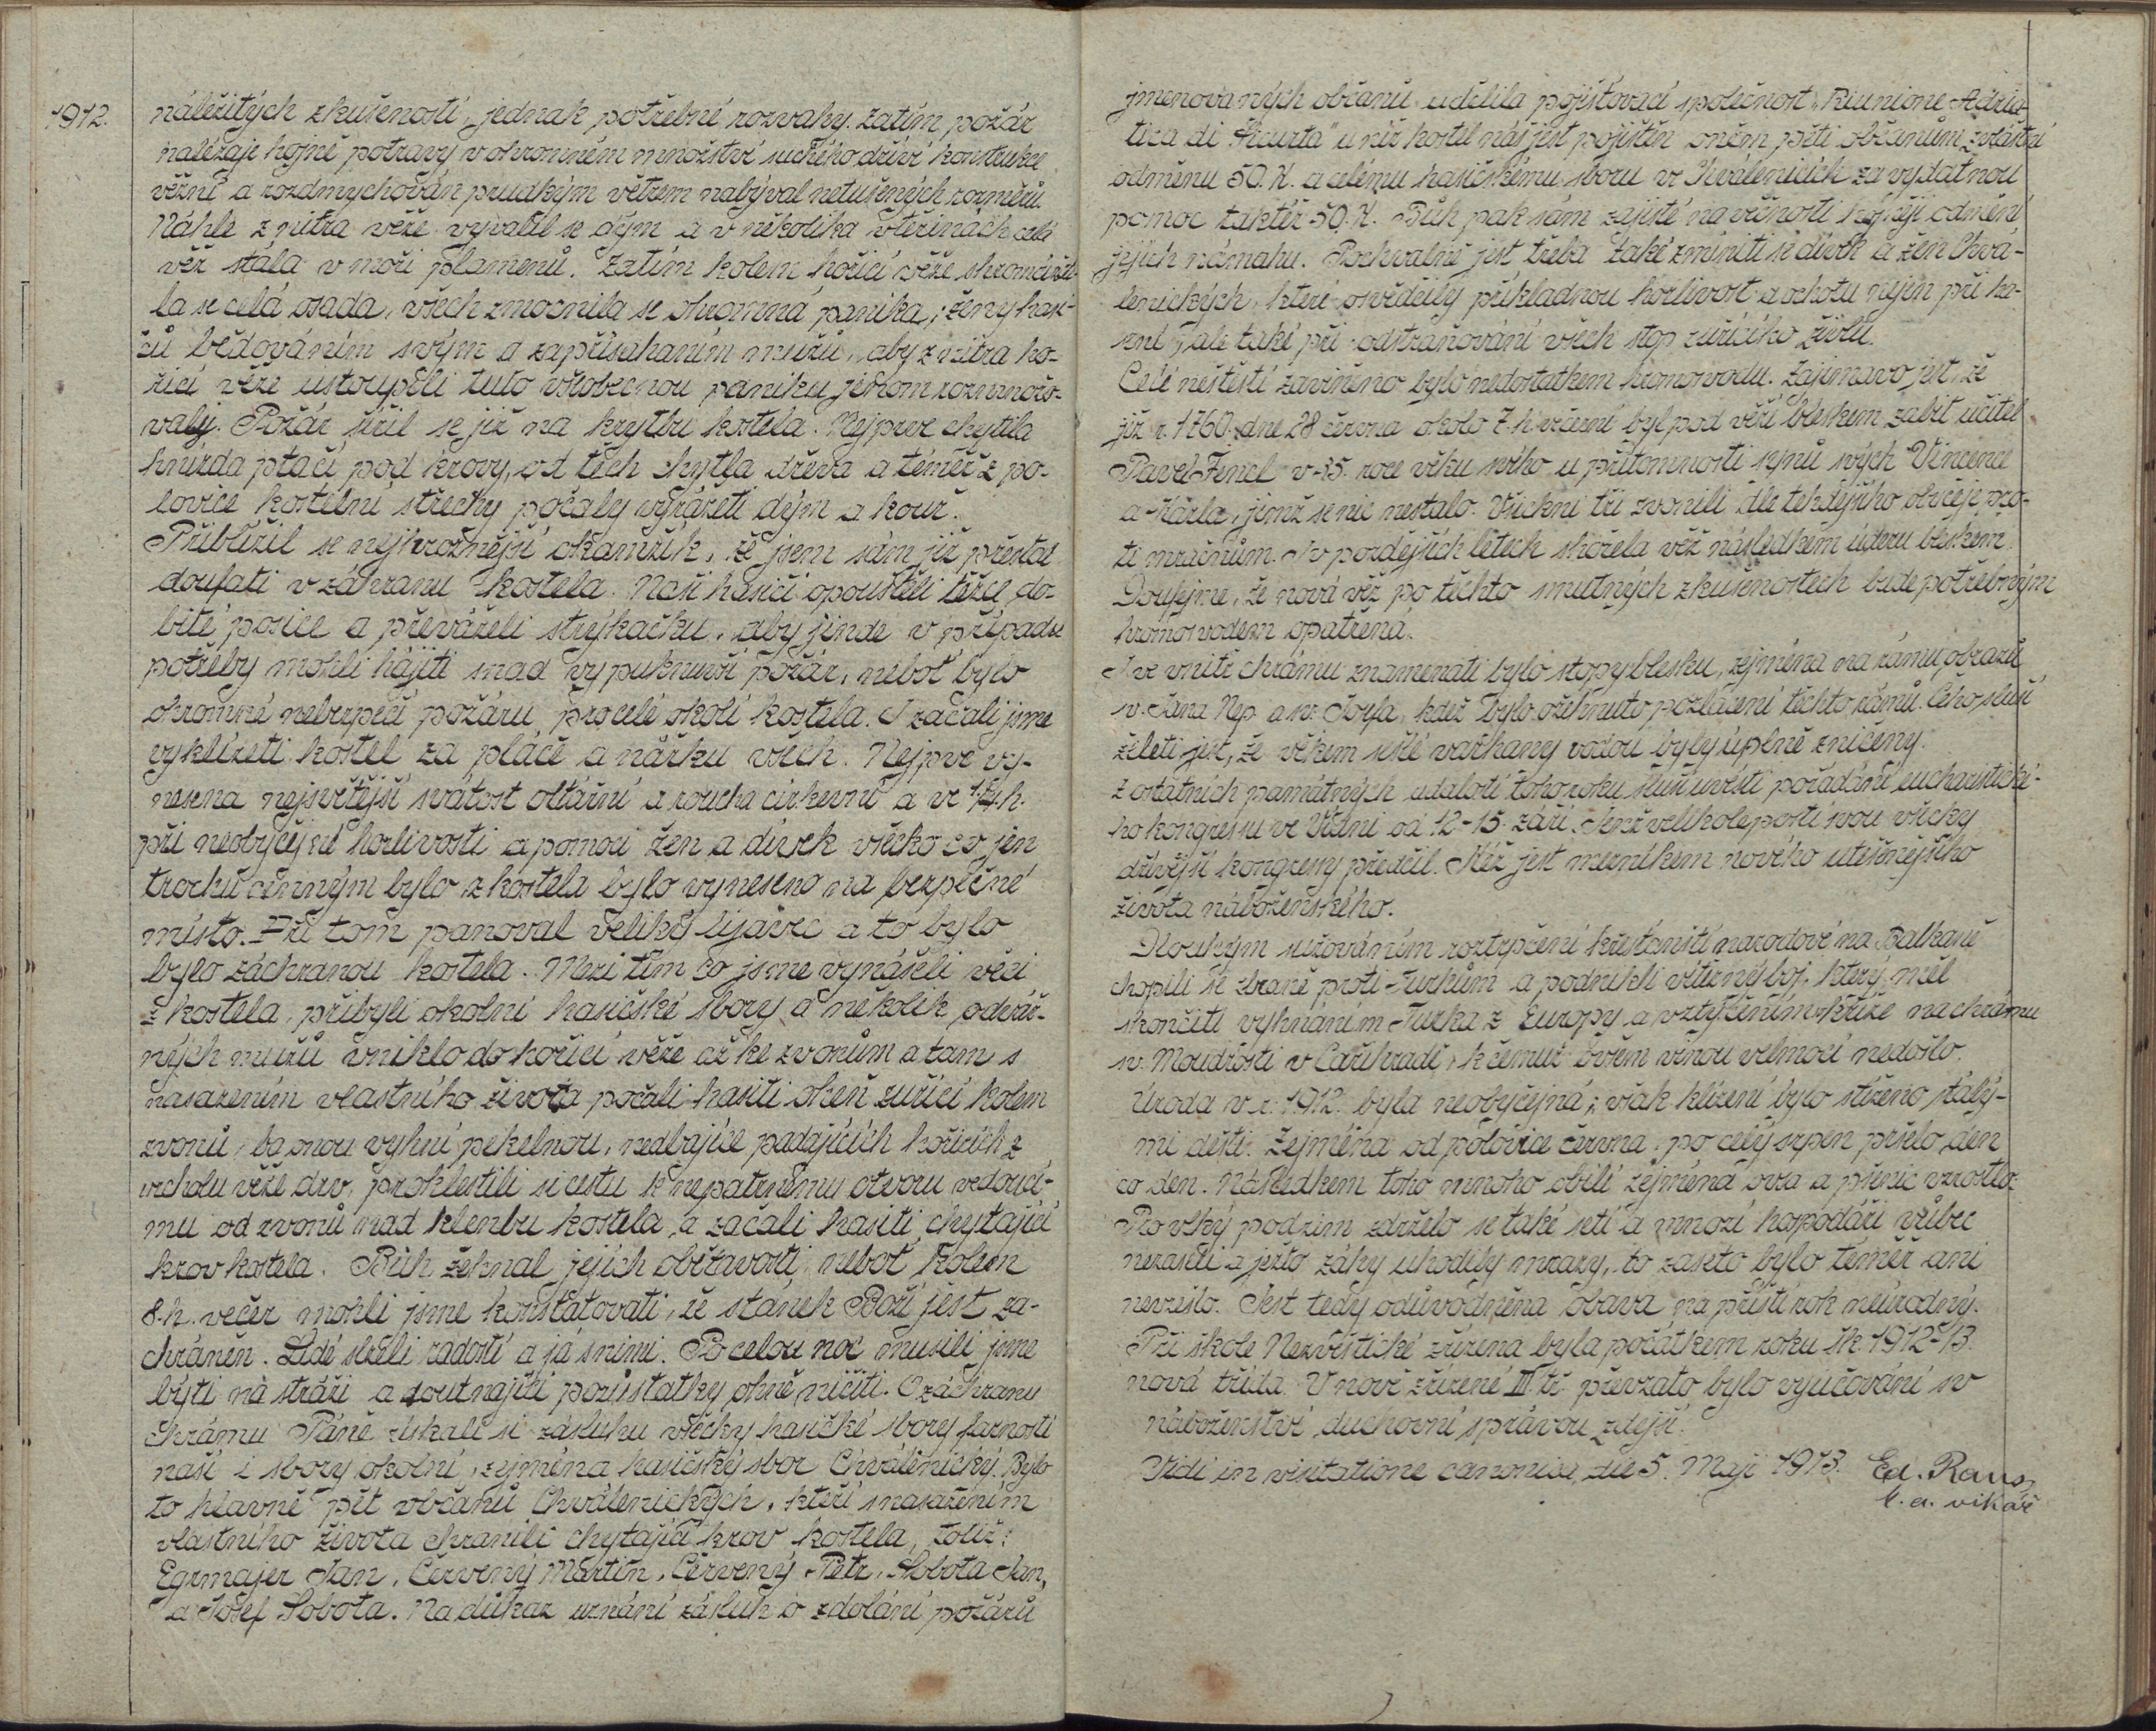 1912.
náležitých zkušeností, jednak potřebné rozvahy. Zatím požár
nalézaje hojně potravy v ohromném množství suchého dříví konstrukce
věžní a rozdmychován prudkým větrem nabýval netušených rozměrů.
Náhle z nitra věže vyvalil se dým a v několika vteřinách celá
věž stála v moři plamenů. Zatím kolem hořící věže shromáždi-
la se celá osada, všech zmocnila se ohromná panika, ženy hasi-
čů bědováním svým a zapřísaháním mužů, aby z nitra ho-
řící věže ustoupili tuto všobecnou paniku jenom rozmnožo-
valy. Požár šířil se již na krytbu kostela. Nejprve chytila
hnízda ptačí pod krovy, od těch chytla dřeva a téměř z po-
lovice kostelní střechy počaly vyrážeti dým a kouř.
Přiblížil se nejhroznější okamžik, že jsem sám již přestal
doufati v záchranu kostela. Naši hasiči opouštěli těžce do-
bité posice a převáželi stříkačku, aby jinde v případu
potřeby mohli hájiti snad vypuknuvší požár, neboť bylo
ohromné nebezpečí požáru pro celé okolí kostela. I začali jsme
vyklízeti kostel za pláče a nářku všech. Nejprve vy-
nesena nejsvětější svátost oltářní a roucha církevní a ve ¼ h.
při neobyčejné horlivosti a pomoci žen a dívek všecko co jen
trochu cenným bylo z kostela bylo vyneseno na bezpečné
místo. Při tom panoval veliký liják a to bylo
bylo záchranou kostela. Mezi tím co jsme vynášeli věci
z kostela, přibyli okolní hasičské sbory a několik odváž-
ných mužů vniklo do hořící věže až ke zvonům a tam s
nasazením vlastního života počali hasiti oheň zuřící kolem
zvonů, ba onou vyhní pekelnou, nedbajíce padajících hořících z
vrcholu věže drv, proklestili si cestu k nepatrnému otvoru vedoucí-
mu od zvonů nad klenbu kostela, a začali hasiti chytající
krov kostela. Bůh žehnal jejich obětavosti, neboť kolem
8. h. večer mohli jsme konstatovati, že stánek Boží jest za-
chráněn. Lidé slzeli radostí a já s nimi. Po celou noc musili jsme
býti na stráži a doutnající pozůstatky ohně ničiti. O záchranu
chrámu Páně získali si zásluhu všecky hasičké sbory farnosti
naší i sbory okolní, zejména hasičský sbor Chválenický. Bylo
to hlavně pět občanů Chválenických, kteří s nasazením
vlastního života chránili chytající krov kostela, totiž:
Egrmajer Jan, Červený Martin, Červený Petr, Slobota Jan,
a Josef Sobota. Na důkaz uznání zásluh o zdolání požárů
jmenovaných občanů udělila pojišťovací společnost „Riunione Adria-
tica di Sicurta" u níž kostel náš jest pojištěn oněm pěti občanům zvláštní
odměnu 50. K. a celému hasičskému sboru ve Chválenicích za vydatnou
pomoc taktéž 50. K. Bůh pak sám zajisté na věčnosti hojněji odmění
jejich námahu. Pochvalně jest třeba také zmíniti se dívek a žen Chvá-
lenických, které osvědčily příkladnou horlivost a ochotu nejen při ha-
šení, ale také při odstraňování všech stop zuřícího živlu.
Celé neštěstí zaviněno bylo nedostatkem hromosvodu. Zajímavo jest, že
již r. 1760. dne 28 června okolo 7. h. večerní byl pod věží bleskem zabit učitel
Pavel Fencl v 35. roce věku svého u přítomnosti synů svých Vincence
a Karla, jimž se nic nestalo. Všickni tři zvonili dle tehdejšího obyčeje pro-
ti mračnům. I v pozdějších létech shořela věž následkem úderu bleskem.
Doufejme, že nová věž po těchto smutných zkušenostech bude potřebným
hromosvodem opatřena.
I ve vnitř chrámu znamenati bylo stopy blesku, zejména na rámu obrazů
sv. Jana Nep. a sv. Josefa, kdež bylo ožehnuto pozlacení těchto rámů. Čeho sluší
želeti jest, že věkem sešlé varhany vodou byly úplně zničeny.
Z ostatních památných událostí tohoto roku sluší uvésti pořádání eucharistické-
ho kongressu ve Vídni od 12-15. září. Jenž velikolepostí svou všecky
dřívější kongresy předčil. Kéž jest mezníkem nového utěšenějšího
života náboženského.
Dlouhým sužováním roztrpčení křesťanští národové na Balkaně
chopili se zbraně proti Turkům a podnikli vítězný boj, který měl
skončiti vyhnáním Turka z Europy a vztyčením kříže na chrámu
sv. Moudrosti v Cařihradě, k čemuž ovšem vinou velmocí nedošlo.
Úroda v r. 1912. byla neobyčejná, však klizení bylo stíženo stálý-
mi dešti. Zejména od polovice června po celý srpen pršelo den
co den. Následkem toho mnoho obilí zejména ovsa a pšenic vzrostlo.
Pro vlhký podzim zdrželo se také setí a mnozí hospodáři vůbec
nezaseli a ježto záhy uhodily mrazy, to zaseto bylo téměř ani
nevzešlo. Jest tedy odůvodněna obava na příští rok neúrodný.
Při škole Nezvěstické zřízena byla počátkem roku šk. 1912-13.
nová třída. V nově zřízené III. tř. převzato bylo vyučování sv
náboženství duchovní správou zdejší.
Vidi in visitatione canonica die 5. Maji 1913. Ed. Raus,
b. a. vikář